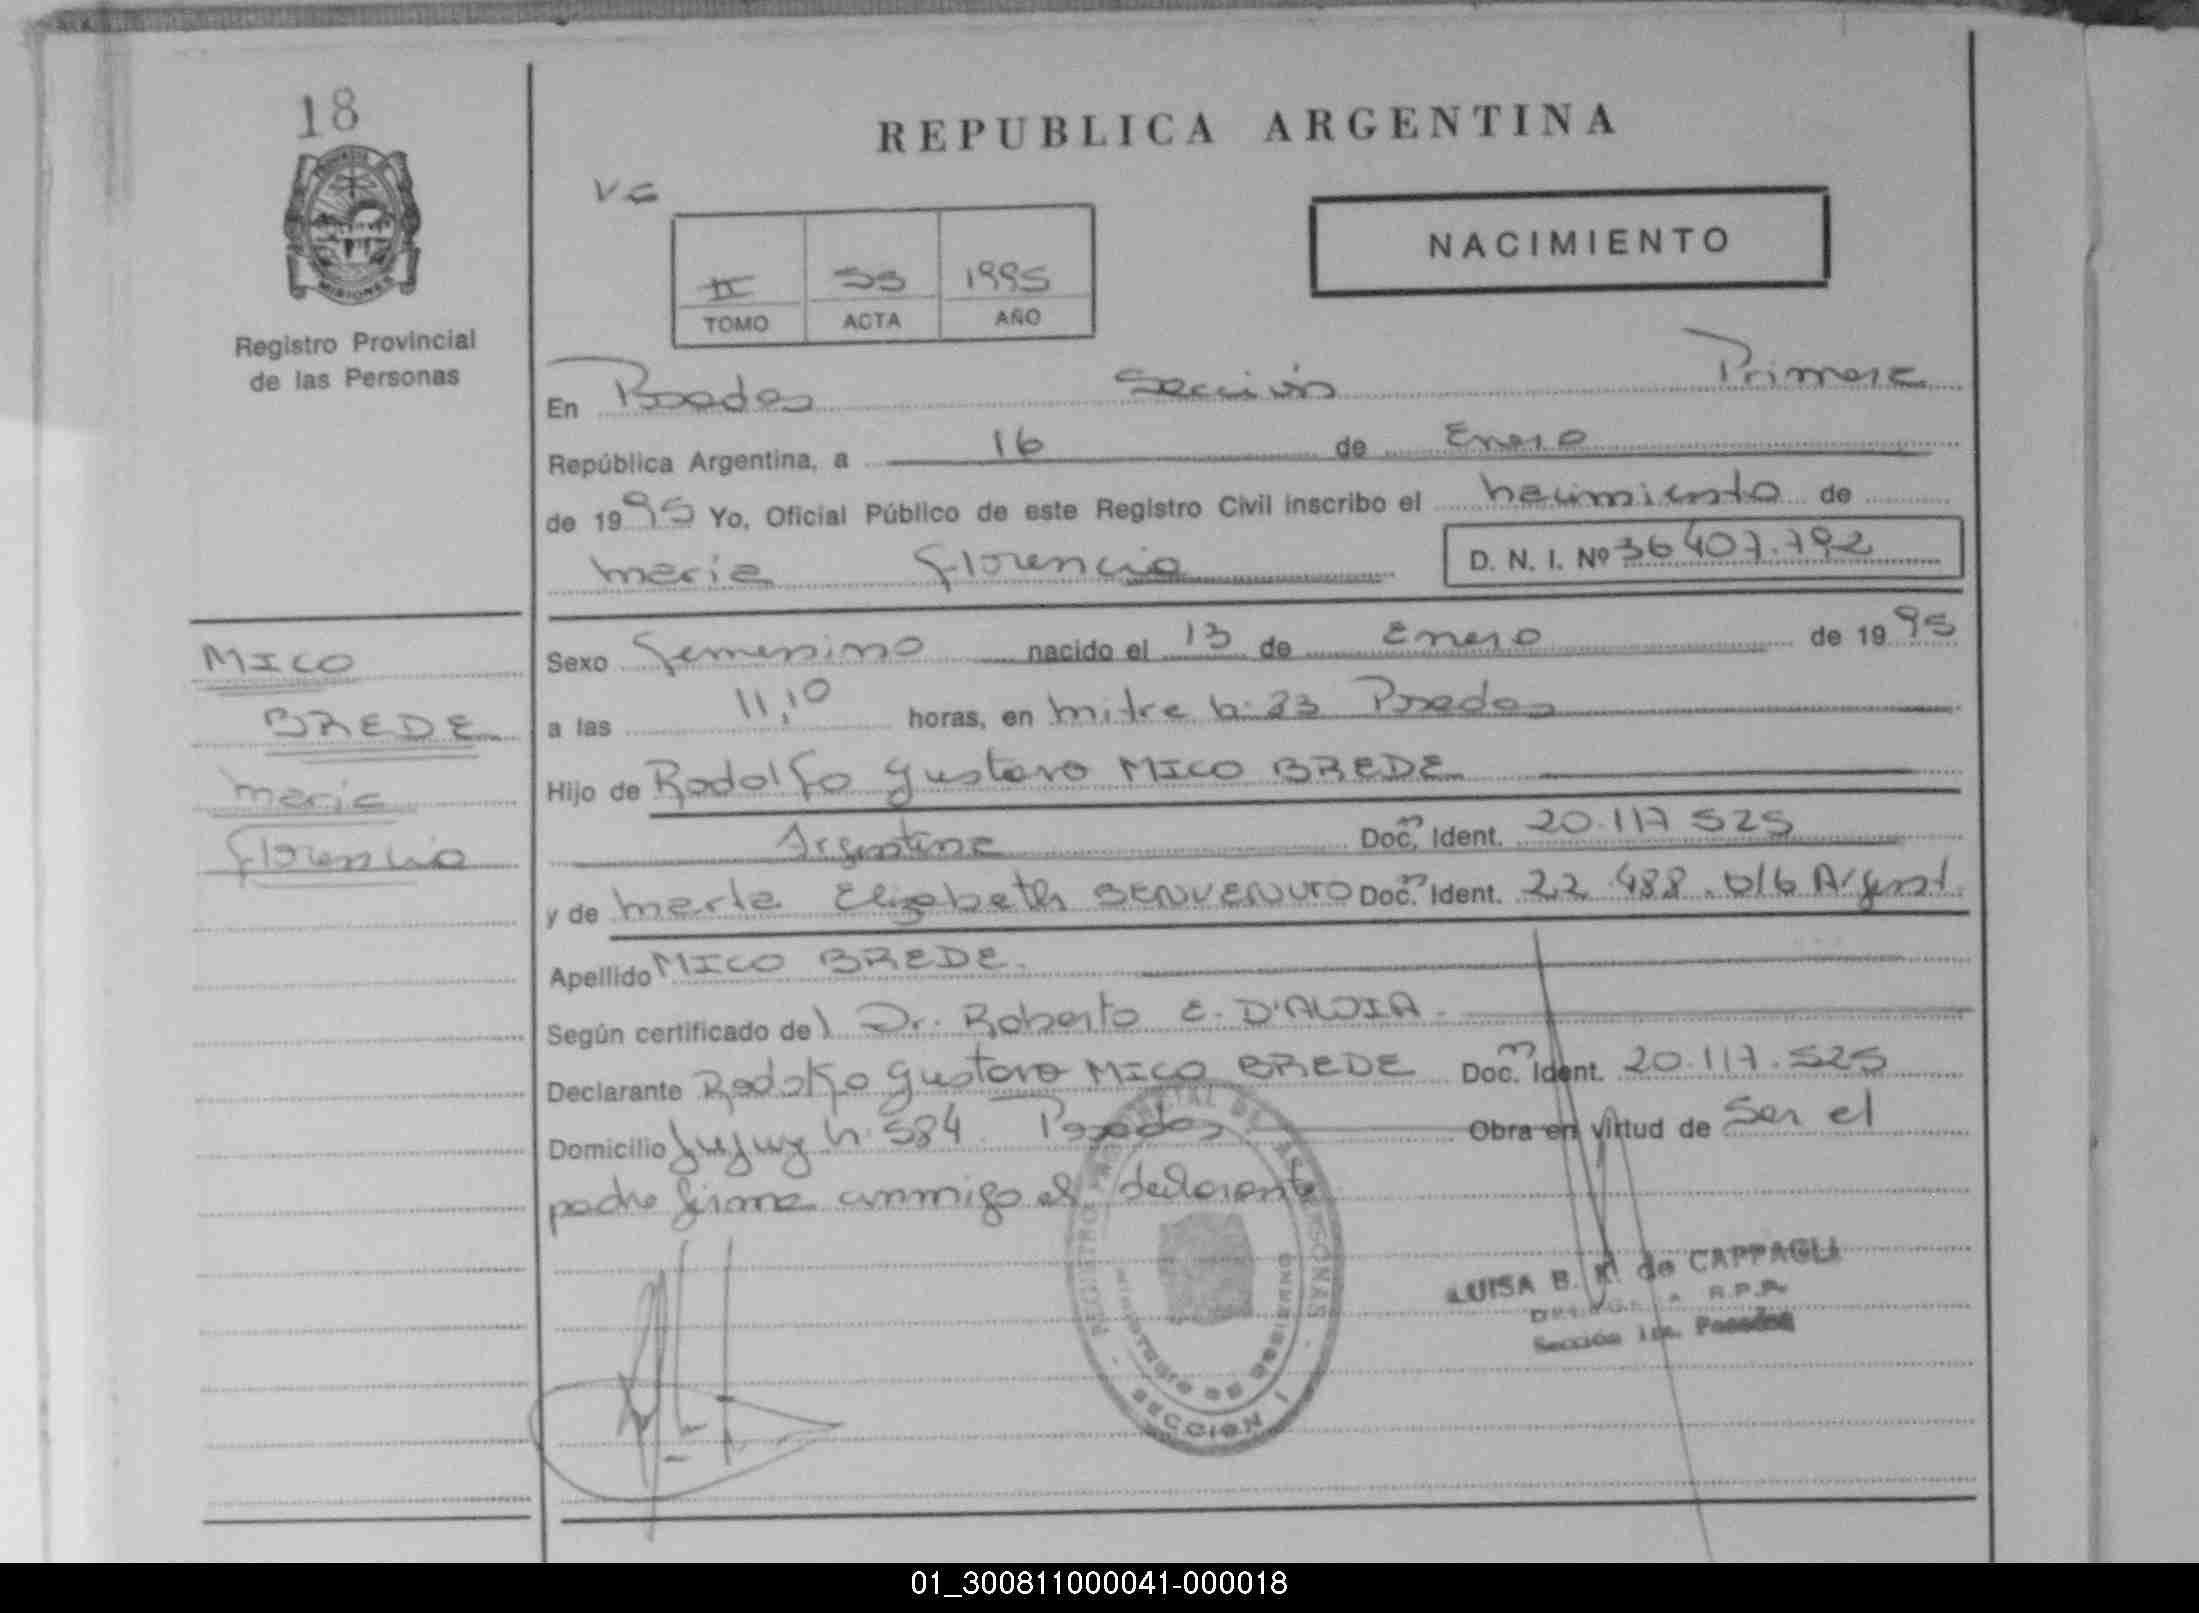 18
MISIONES
Registro Provincial
de las Personas
REPUBLICA ARGENTINA
VG
NACIMIENTO
II 1995
TOMO ACTA AÑO
En Posadas Sección Primera
República Argentina, a 16 de Enero
de 1995 Yo, Oficial Público de este Registro Civil inscribo el nacimiento de
maria Florencia D. N. I. Nº 36 407.792
MICO
BREDE
maria
Florencia
Sexo Femenino nacido el 13 de Enero de 1995
a las 11,10 horas, en mitre n: 23 Posadas
Hijo de Rodolfo Gustavo MICO BREDE
Argentina Doc. Ident. 20.117 525
y de marta Elizabeth BENVENUTO Doc. Ident. 22.488.016 Argent.
Apellido MICO BREDE.
Según certificado del Dr. Roberto E. D'ALOIA.
Declarante Rodolfo Gustavo MICO BREDE Doc. Ident. 20.117.525
Domicilio Jujuy n: 584 Posadas Obra en virtud de Ser el
padre firma conmigo el declarante
REGISTRO PROVINCIAL DE LAS PERSONAS
MINISTERIO DE GOBIERNO
SECCION 1
LUISA B. K. de CAPPAGLI
R.P.P.
Sección 1ra. Posadas
01_300811000041-000018